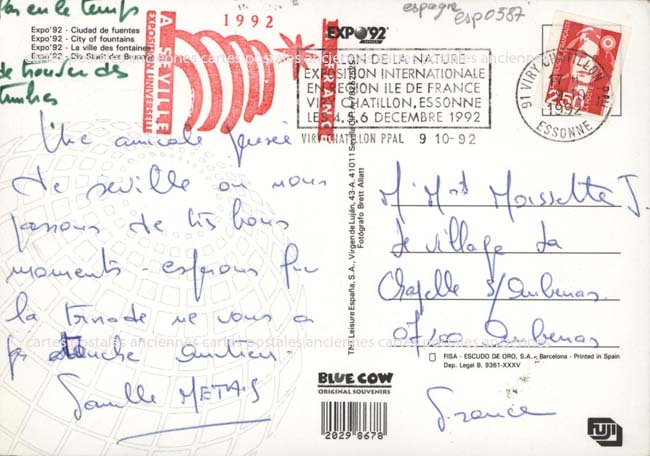 pas eu le temps
de trouver des
timbres
Expo'92 - Ciudad de fuentes
Expo'92 - City of fountains
Expo'92 - La ville des fontaines
Expo'92 - Die Stadt der Brunnen
1992
A SEVILLE
EXPOSITION UNIVERSELLE
FRANCE
EXPO'92
espagne
esp0387
SALON DE LA NATURE
EXPOSITION INTERNATIONALE
EN REGION ILE DE FRANCE
VIRY CHATILLON, ESSONNE
LES 4, 5, 6 DECEMBRE 1992
VIRY CHATILLON PPAL 9 10-92
91 VIRY CHATILLON PPAL
9-10
1992
ESSONNE
2,50
Une amicale pensée
de seville où nous
passons de très bons
moments - esperons que
la tornade ne vous a
pas touché
Famille METAIS
The Leisure España, S.A., Virgen de Luján, 43-A. 41011 Sevilla
Fotógrafo Brett Allatt
M. Mme Moissette J.
le village La
Chapelle s/Aubenas
07200 Aubenas
France
FISA - ESCUDO DE ORO, S.A. - Barcelona - Printed in Spain
Dep. Legal B. 9361-XXXV
BLUE COW
ORIGINAL SOUVENIRS
2029 8678
FUJI
cartes postales anciennes cartes postales anciennes cartes postales anciennes